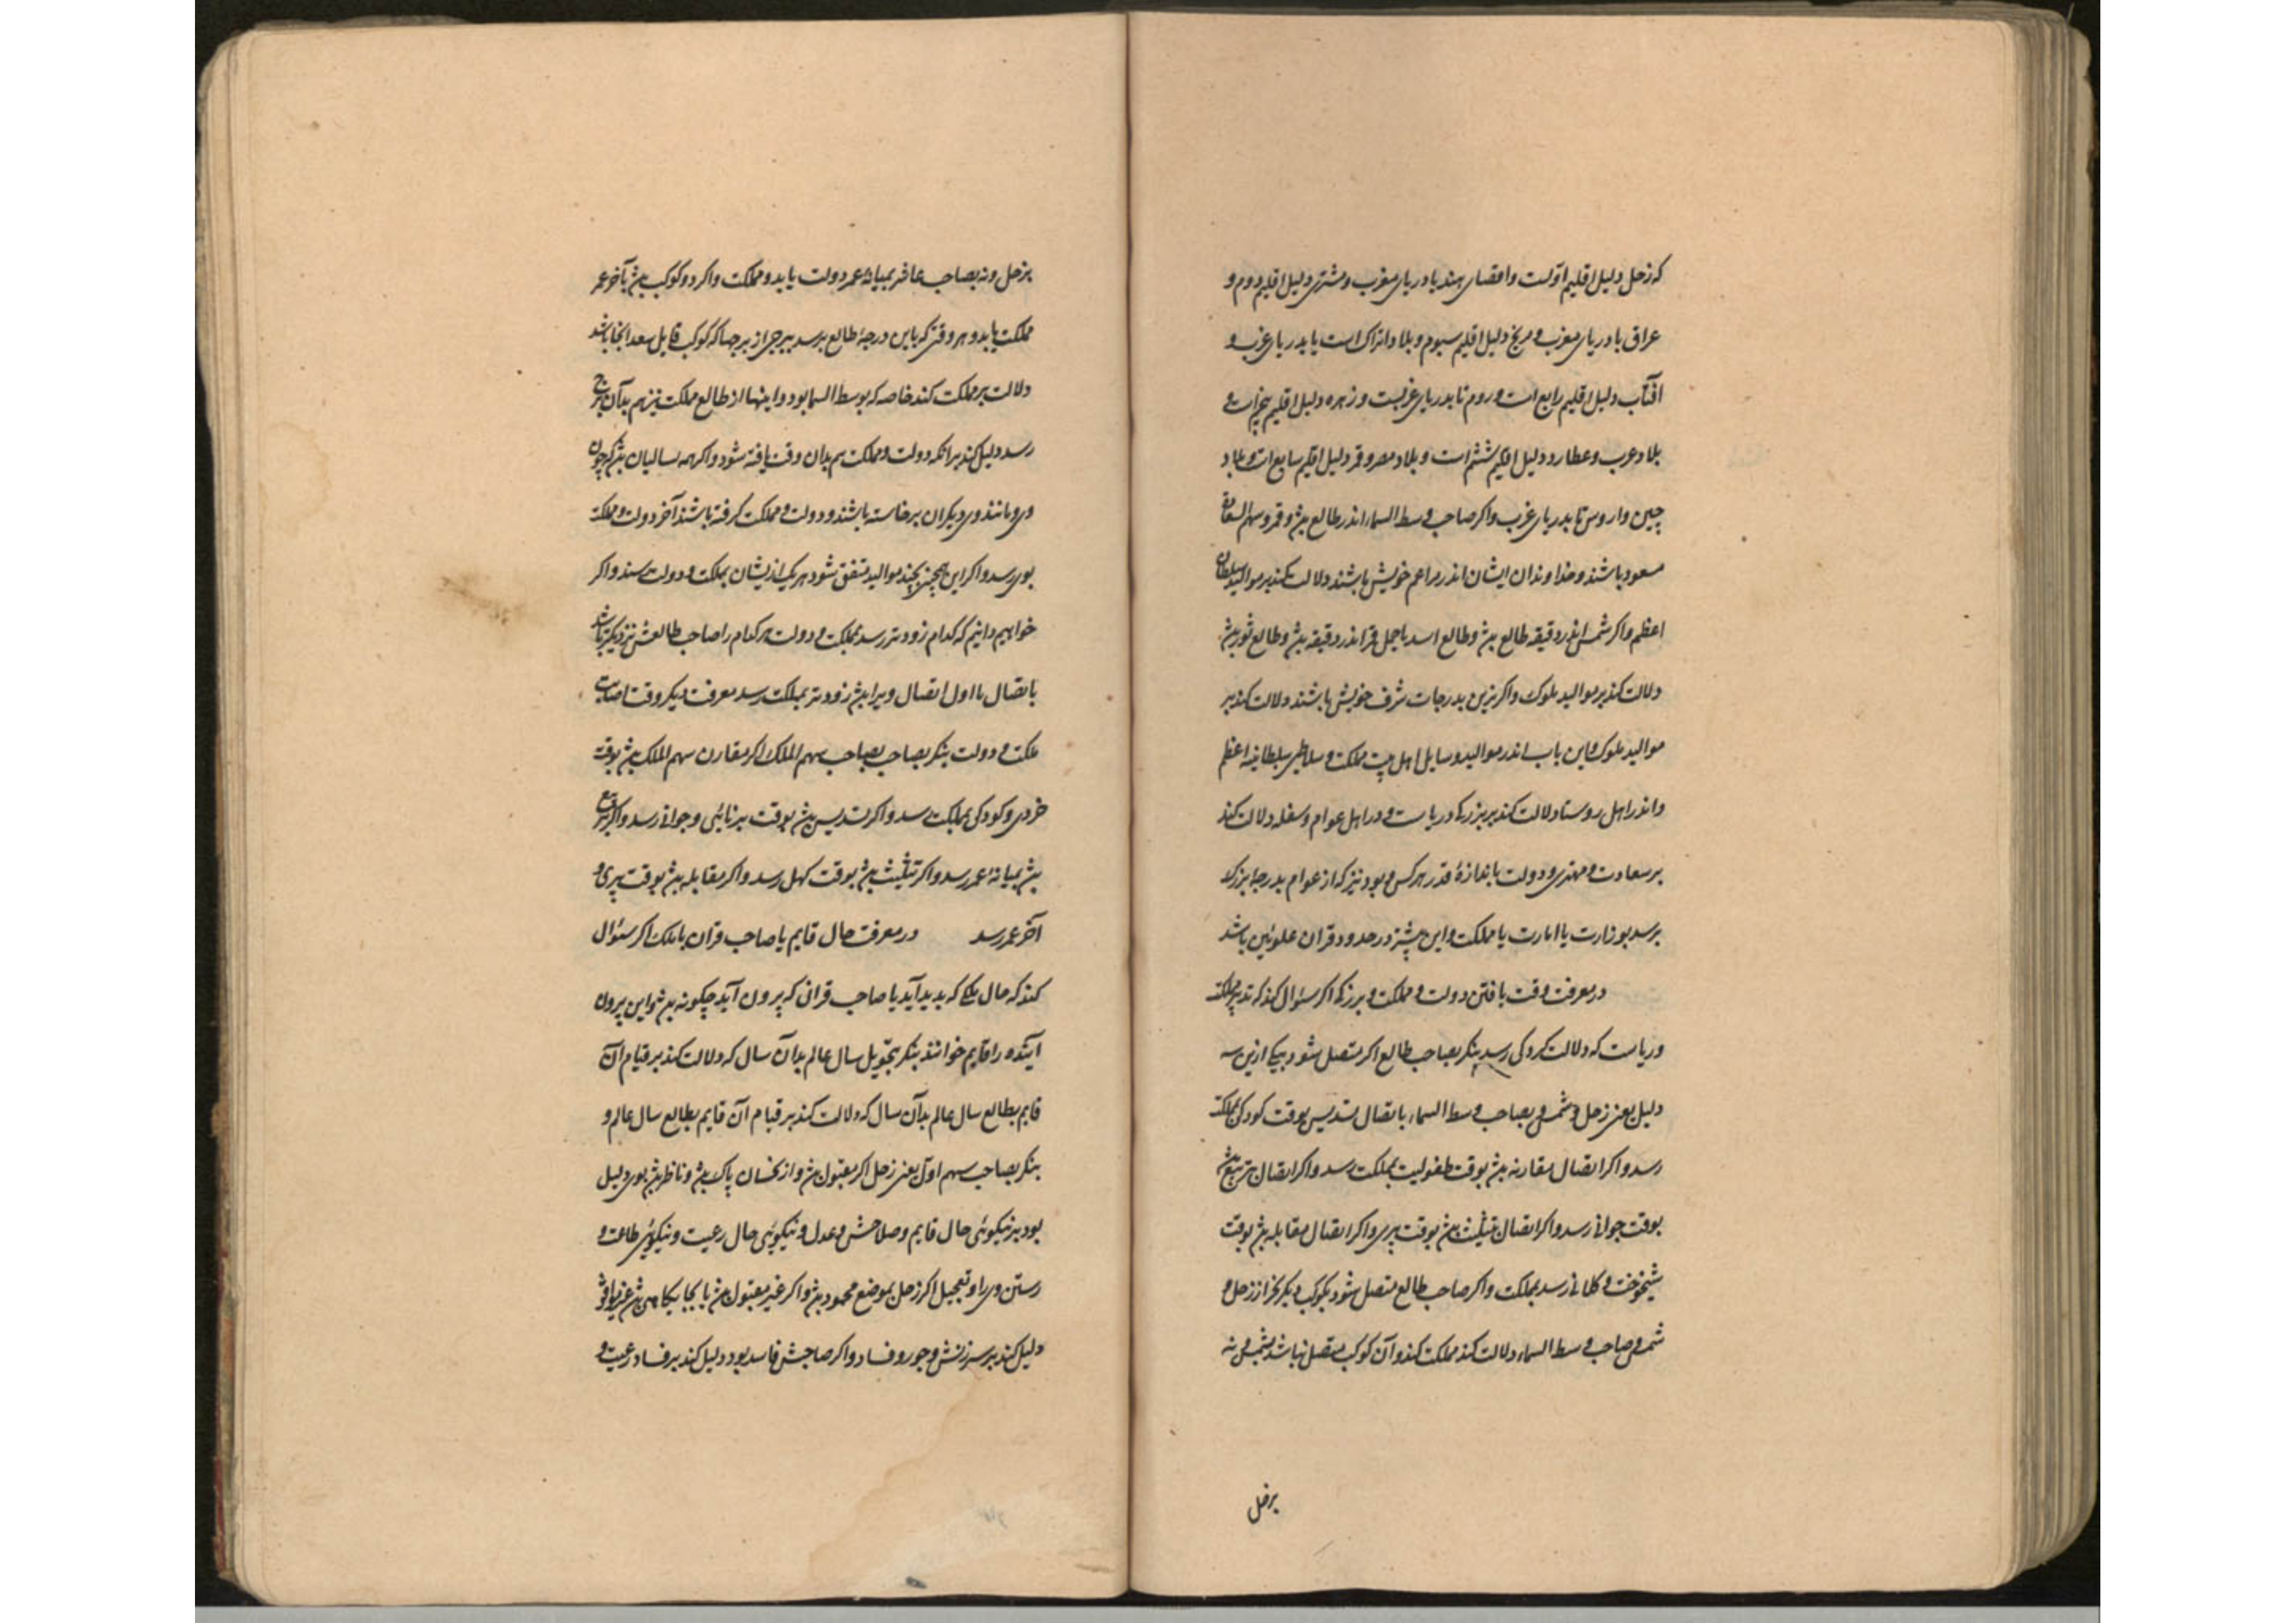 که زحل دلیل اقلیم اولست و اقصای هند با دریای مغرب و مشتری دلیل اقلیم دوم و
عراق با دریای مغرب و مریخ دلیل اقلیم سیوم و بلاد اتراک است یا بدریای غرب و
آفتاب دلیل اقلیم رابع است و روم تا بدریای غربست و زهره دلیل اقلیم پنجم است و
بلاد عرب و عطارد دلیل اقلیم ششم است و بلاد مصر و قمر دلیل اقلیم سابع است و بلاد
چین و اروس تا بدریای غرب و اکر صاحب وسط السماء اندر طالع بش و قمر و سهم السعادة
مسعود باشند و خداوندان ایشان اندر مزاعم خویش باشند دلالت کند بر موالید سلطان
اعظم و اکر شمس اندر دقیقه طالع بش و طالع اسد یا حمل و قمر اندر دقیقه بش و طالع ثور بش
دلالت کند بر موالید ملوک و اکر نزین بدرجات شرف خویش باشند دلالت کند بر
موالید ملوک و این باب اندر موالید و سایل اهل بیت مملکت و سلاطین سلطانیه اعظم
و اندر اهل روستا دلالت کند بر بزرکی و ریاست و در اهل عوام و سفله دلالت کند
بر سعادت و مهتری و دولت باندازهٔ قدر هر کس و بود نیز که از عوام بدرجا بزرک
برسد بوزارت یا امارت یا مملکت و این بیشتر در حدود قران علویین باشد
در معرفت وقت یافتن دولت و مملکت و بزرکی اکر سئوال کند که تدبیر مملکت
و ریاست که دلالت کرد کی رسد بنکر بصاحب طالع اکر متصل شود بیکی ازین سه
دلیل یعنی زحل و شمس و بصاحب وسط السماء باتصال تسدیس بوقت کودکی بمملکت
رسد و اکر اتصال مقارنه بش بوقت طفولیت بمملکت رسد و اکر اتصال تربیع بش
بوقت جوانی رسد و اکر اتصال تثلیث بش بوقت پیری و اکر اتصال مقابله بش بوقت
شیخوخت و کلانی رسد بمملکت و اکر صاحب طالع متصل شود بکوکب دیکر بجز از زحل و
شمس و صاحب وسط السماء دلالت کند مملکت کند و آن کوکب متصل نباشد بشمس و نه
بزحل
بزحل و نه بصاحب عاشر بمیانهٔ عمر دولت یابد و مملکت و اکر دو کوکب بش بآخر عمر
مملکت یابد و هر وقتی که باین درجهٔ طالع برسد ببرجی از برجها که کوکب قابل سعد آنجا باشد
دلالت بر مملکت کند خاصه که بوسط السما بود و اینها از طالع مملکت نیز هم بدآن برج
رسد دلیل کند بر آنکه دولت و مملکت هم بدان وقت یافته شود و اکر همه بسالیان بش که چون
وی و مانند وی دیکران برخاسته باشند و دولت و مملکت کرفته باشند آخر دولت و مملکت
بوی رسد و اکر این همچنین بچند موالید متفق شود هر یک از ایشان بملکت و دولت رسند و اکر
خواهیم دانیم که کدام زودتر رسد بمملکت و دولت هر کدام را صاحب طالعش نزدیکتر باشد
باتصال یا اول اتصال ویرا بش زودتر بمملکت رسد معرفت دیکر وقت اصابت
ملکت و دولت بنکر بصاحب بصاحب سهم الملک اکر مقارن سهم الملک بش بوقت
خردی و کودکی بمملکت رسد و اکر تسدیس بش بوقت برنائی و جوانی رسد و اکر تربیع
بش بمیانهٔ عمر رسد و اکر تثلیث بش بوقت کهل رسد و اکر مقابله بش بوقت پیری و
آخر عمر رسد در معرفت حال قایم یا صاحب قران یا ملک اکر سئوال
کند که حال یکی که پدید آید یا صاحب قرانی که بیرون آید چکونه بش و این بیرون
آینده را قایم خوانند بنکر بتحویل سال عالم بدآن سال که دلالت کند بر قیام آن
قایم بطالع سال عالم بدآن سال که دلالت کند بر قیام آن قایم بطالع سال عالم و
بنکر بصاحب سهم اول یعنی زحل اکر مقبول بش و از نحسان پاک بش و ناظر بش بوی دلیل
بود بر نیکوئی حال قایم و صلاحش و عدل و نیکوئی حال رعیت و نیکوئی طاعت و
رستن وی را و تعجیل اکر زحل بموضع محمود بش و اکر غیر مقبول بش
دلیل کند بر سرزنش و جور و فساد و اکر صاحبش فاسد بود دلیل کند بر فساد رعیت و